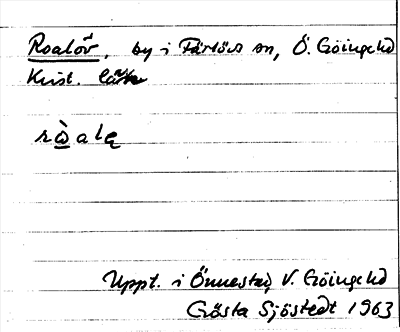 Roalöv, by i Färlövs sn, Ö. Göinge hd
Krist. län
rò̲alę
Uppt. i Önnestad, V. Göinge hd
Gösta Sjöstedt 1963